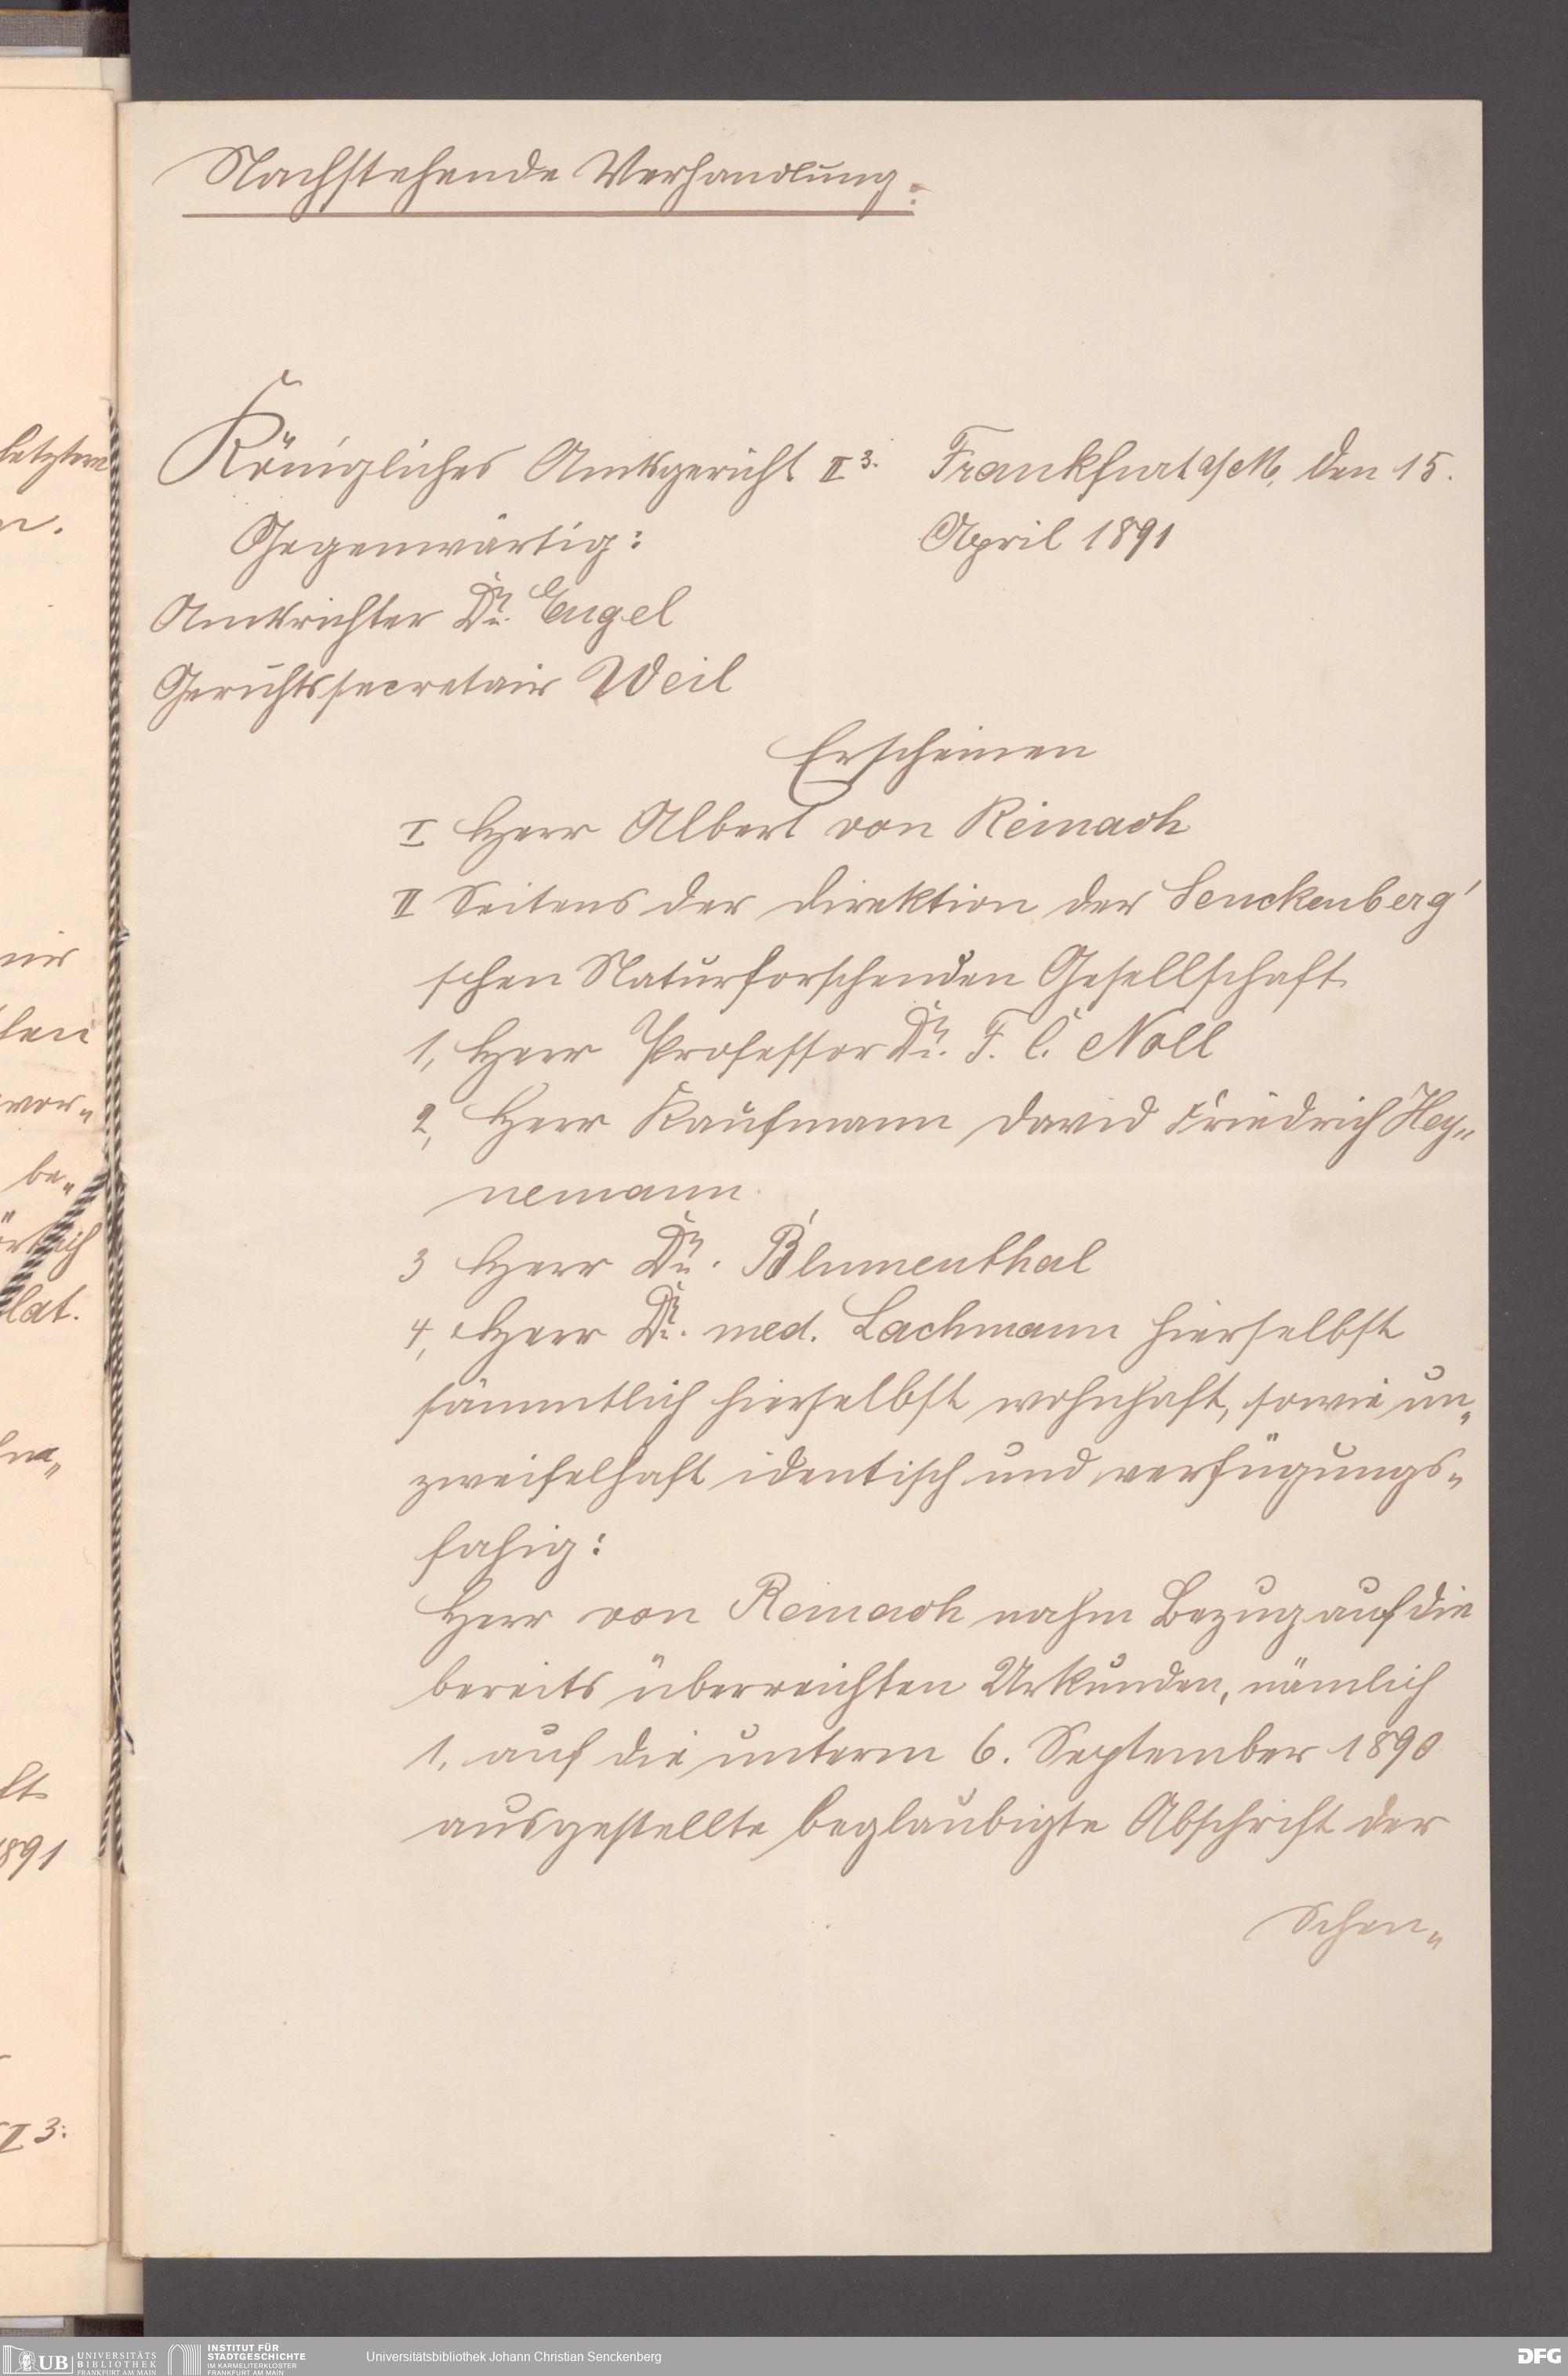 Nachstehende Verhandlung:
Königliches Amtsgericht II 3. Frankfurt a/M, den 15.
Gegenwärtig: April 1891
Amtsrichter Dr. Engel
Gerichtssecretair Weil
Erscheinen
I Herr Albert von Reinach
II Seitens der Direktion der Senckenberg'
schen Naturforschenden Gesellschaft
1, Herr Professor Dr. F. C. Noll
2, Herr Kaufmann David Friedrich Hey„
nemann.
3 Herr Dr. Blumenthal
4, Herr Dr. med. Lachmann hierselbst
sämmtlich hierselbst wohnhaft, sowie un„
zweifelhaft identisch und verfügungs„
fahig:
Herr von Reinach nahm Bezug auf die
bereits überreichten Urkunden, nämlich
1, auf die unterm 6. September 1890
ausgestellte beglaubigte Abschrift der
Schen„
letztere
n.
vor„
be„
lat.
ft
1891
II 3:
UB UNIVERSITÄTS
BIBLIOTHEK
FRANKFURT AM MAIN
INSTITUT FÜR
STADTGESCHICHTE
IM KARMELITERKLOSTER
FRANKFURT AM MAIN
Universitätsbibliothek Johann Christian Senckenberg
DFG